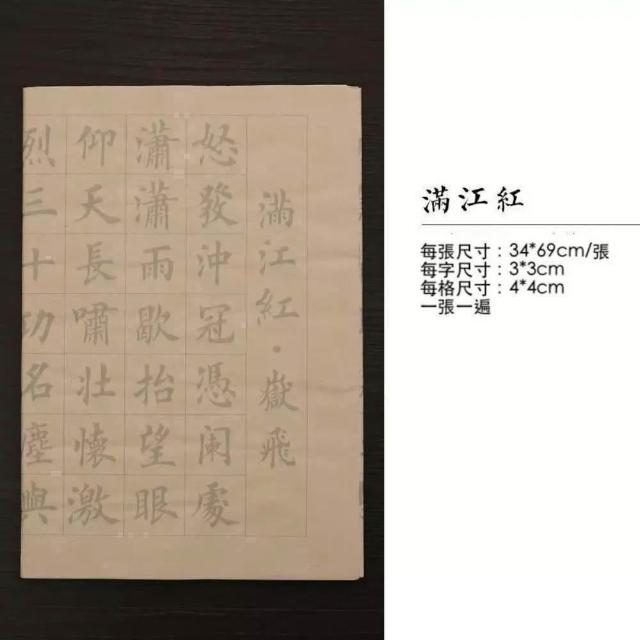 滿江紅·嶽飛
怒發沖冠憑阑處
瀟瀟雨歇抬望眼
仰天長嘯壮懷激
烈三十功名塵與
滿江紅
每張尺寸：34*69cm/張
每字尺寸：3*3cm
每格尺寸：4*4cm
一張一遍